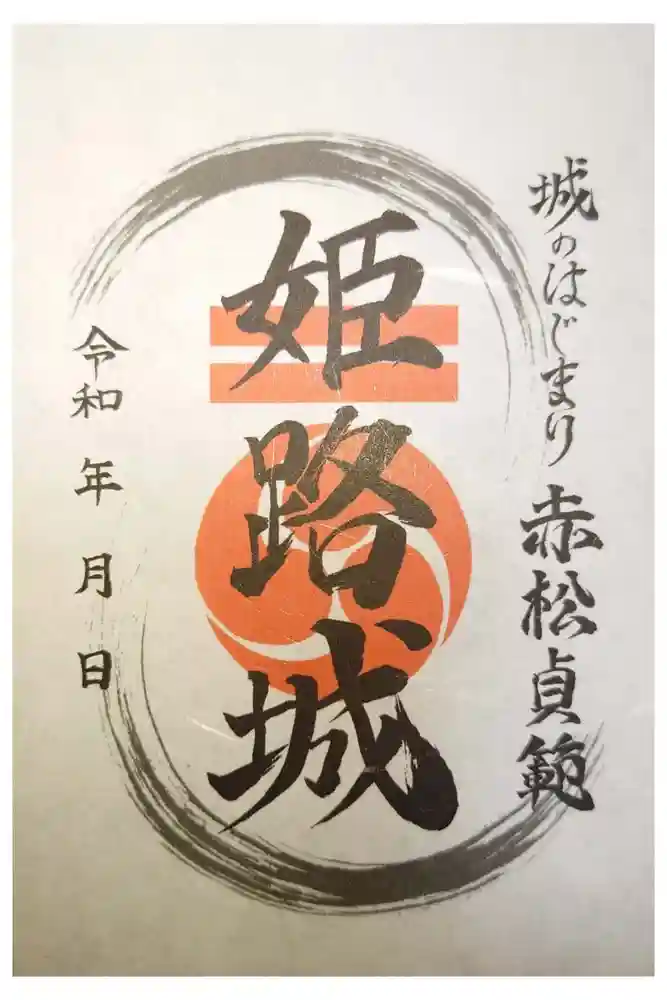 城のはじまり 赤松貞範
姫路城
令和 年 月 日